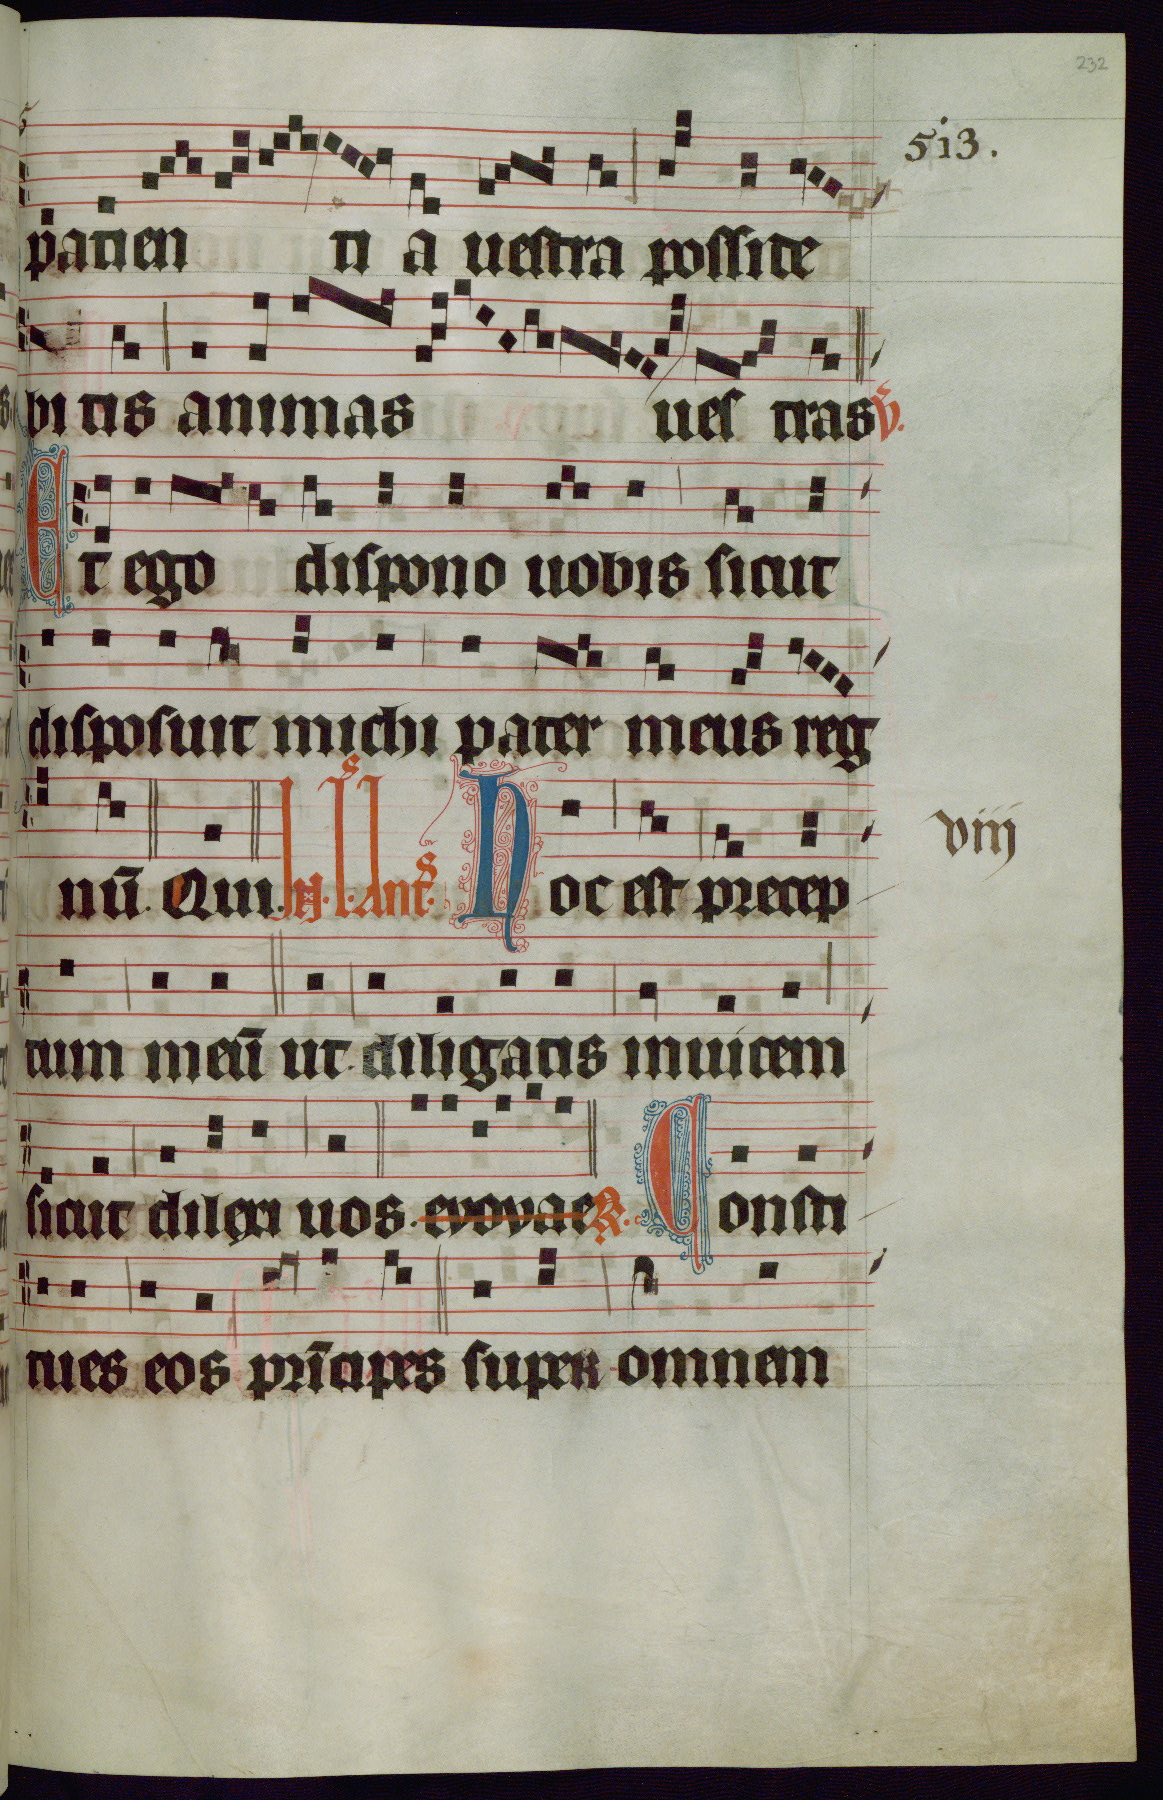 232
513.
patien ti a uestra posside
bitis animas ues tras V̄.
Et ego dispono uobis sicut
disposuit michi pater meus reg
nū. Qui. Antˢ. Hoc est precep
viij
tum meū ut diligatis inuicem
sicut dilexi uos. evovae R. Consti
tues eos prīcipes super omnem